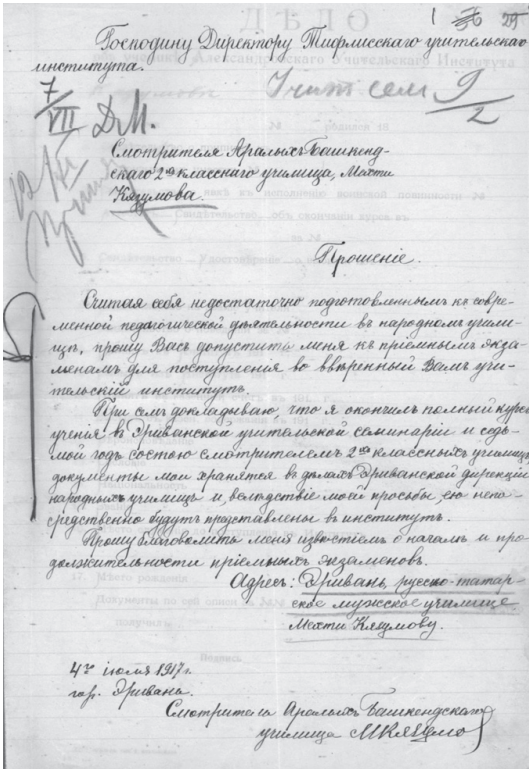 1 29
Господину Директору Тифлисскаго учительскаго
института.
7/VII
Учит сем
Смотрителя Аралыхъ Башкенд-
скаго 2хъ класснаго училища, Мехти
Кязумова.
Прошеніе.
Считая себя недостаточно подготовленнымъ къ совре-
менной педагогической дѣятельности въ народномъ учили-
щѣ, прошу Васъ допустить меня къ пріемнымъ экза-
менамъ для поступленія во ввѣренный Вамъ учи-
тельскій институтъ.
При семъ докладываю, что я окончилъ полный курсъ
ученія въ Эриванской учительской семинаріи и седь-
мой годъ состою смотрителемъ 2хъ классныхъ училищъ,
документы мои хранятся въ дѣлахъ Эриванской дирекціи
народныхъ училищъ и, вслѣдствіе моей просьбы, ею непо-
средственно будутъ представлены въ институтъ.
Прошу благоволить меня извѣстіемъ о началѣ и про-
должительности пріемныхъ экзаменовъ.
Адресъ: Эривань, русско-татар-
ское мужское училище
Мехти Кязумову.
4го іюля 1917 г.
гор. Эривань.
Смотритель Аралыхъ Башкендскаго
училища МКязумо